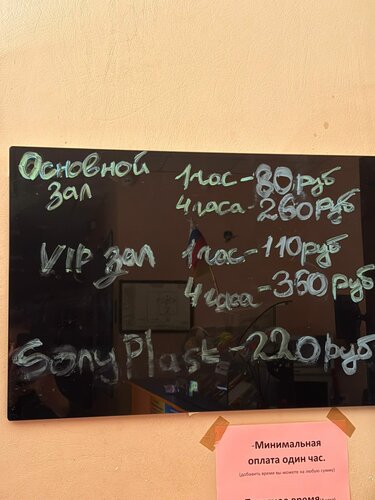 Основной 1 час - 80 руб
зал 4 часа - 260 руб
VIP зал 1 час - 110 руб
4 часа - 360 руб
Sony Plast - 220 руб
-Минимальная
оплата один час.
(добавить время вы можете на любую сумму)